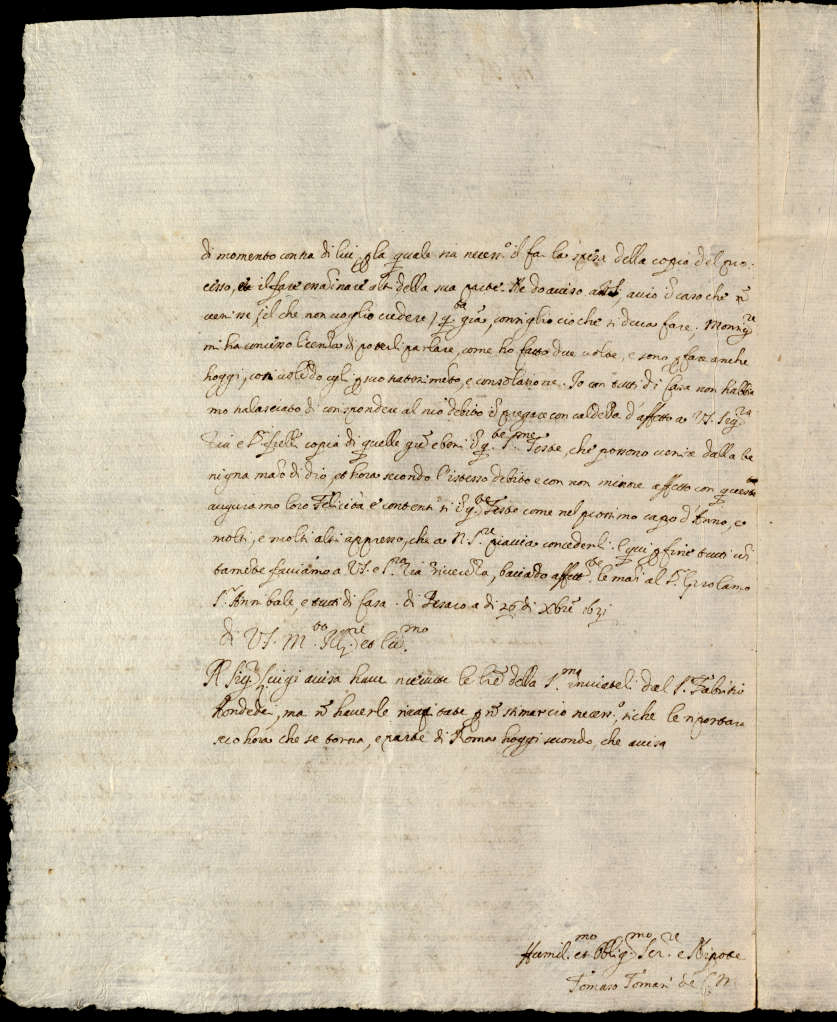 di momento contra di lui, p la quale sia necess.o il far la spesa della copia del pro:
cesso, il fare esaminare alt.i della sua parte. Ne do aviso acciò, in caso che nō
venisse (il che non voglio credere) q.ta già, consiglio cio che si deva fare. Monsig.re
mi ha concesso licenza di poterli parlare, come ho fatto due volte, e sono p fare anche
hoggi, così volēdo egli p suo nutrimēto, e consolatione. Io con tutti di Casa non habbia
mo tralasciato di corrispondere al nrō debito ī pregare con caldezza d'affetto a VS. Sig.ra
Zia e frelli copia di quelle grē e beni ī q.te S.me feste, che possono venire dalla be
nigna mano di Dio, et hora secondo l'istesso debito e con non minore affetto con questa
auguramo loro Felicità e contenti ī q.te Feste come nel prossimo capo d'Anno, e
molti, e molti altri appresso, che a N. S.re piaccia concederli. E qui p fine tutti uni
tamēte facciamo a VS. e S.ra Zia riverēza, baciādo affett.te le mani al S.r Girolamo
S.r Annibale, e tutti di Casa. di Pesaro a di 26 di Xbre 1631
di VS. M.to Ill.re et Ecc.mo
Il Sig.r Luigi avisa have ricevute le lrē della S.ma inviateli dal S. Fabritio
Mondedei, ma nō haverle recapitate p nō stimarcio necess.o, siche le riportara
seco hora che se torna, e parte di Roma hoggi secondo, che avisa
Humil.mo et Oblig.mo Ser.re e Nipote
Tomaso Tomani de